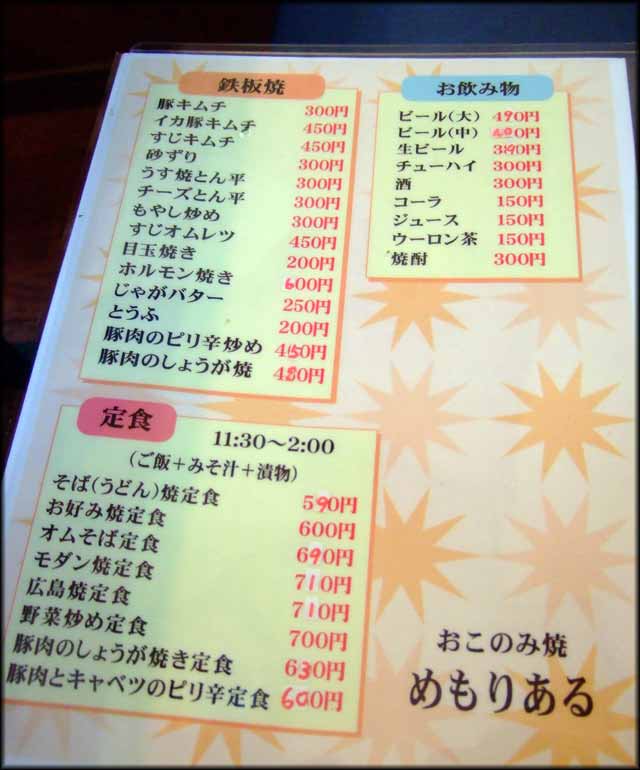 鉄板焼
豚キムチ 300円
イカ豚キムチ 450円
すじキムチ 450円
砂ずり 300円
うす焼とん平 300円
チーズとん平 300円
もやし炒め 300円
すじオムレツ 450円
目玉焼き 200円
ホルモン焼き 600円
じゃがバター 250円
とうふ 200円
豚肉のピリ辛炒め 450円
豚肉のしょうが焼 480円
お飲み物
ビール(大) 490円
ビール(中) 400円
生ビール 390円
チューハイ 300円
酒 300円
コーラ 150円
ジュース 150円
ウーロン茶 150円
焼酎 300円
定食
11:30～2:00
(ご飯＋みそ汁＋漬物)
そば(うどん)焼定食 590円
お好み焼定食 600円
オムそば定食 690円
モダン焼定食 710円
広島焼定食 710円
野菜炒め定食 700円
豚肉のしょうが焼き定食 630円
豚肉とキャベツのピリ辛定食 600円
おこのみ焼
めもりある